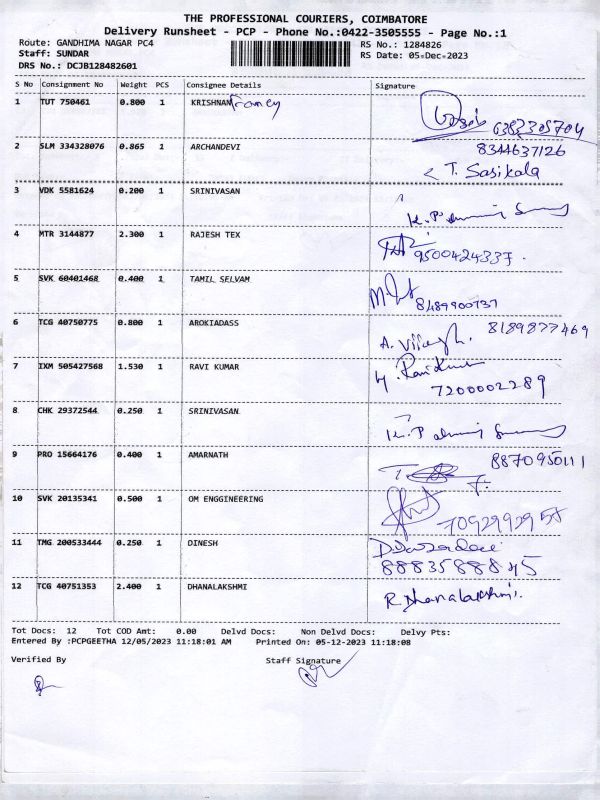 THE PROFESSIONAL COURIERS, COIMBATORE
Delivery Runsheet - PCP - Phone No.:0422-3505555 - Page No.:1
Route: GANDHIMA NAGAR PC4 RS No.: 1284826
Staff: SUNDAR RS Date: 05-Dec-2023
DRS No.: DCJB128482601
S No Consignment No Weight PCS Consignee Details Signature
1 TUT 750461 0.800 1 KRISHNAN 6382305704
2 SLM 334328076 0.865 1 ARCHANDEVI 8344637126
T. Sasikala
3 VDK 5581624 0.200 1 SRINIVASAN
4 MTR 3144877 2.300 1 RAJESH TEX 9500424337.
5 SVK 60401468 0.400 1 TAMIL SELVAM
6 TCG 40750775 0.800 1 AROKIADASS 8189877469
7 IXM 505427568 1.530 1 RAVI KUMAR
7200002289
8 CHK 29372544 0.250 1 SRINIVASAN
9 PRO 15664176 0.400 1 AMARNATH 8870950111
10 SVK 20135341 0.500 1 OM ENGGINEERING
11 TMG 200533444 0.250 1 DINESH
8883588845
12 TCG 40751353 2.400 1 DHANALAKSHMI R. Dhanalakshmi.
Tot Docs: 12 Tot COD Amt: 0.00 Delvd Docs: Non Delvd Docs: Delvy Pts:
Entered By :PCPGEETHA 12/05/2023 11:18:01 AM Printed On: 05-12-2023 11:18:08
Verified By Staff Signature